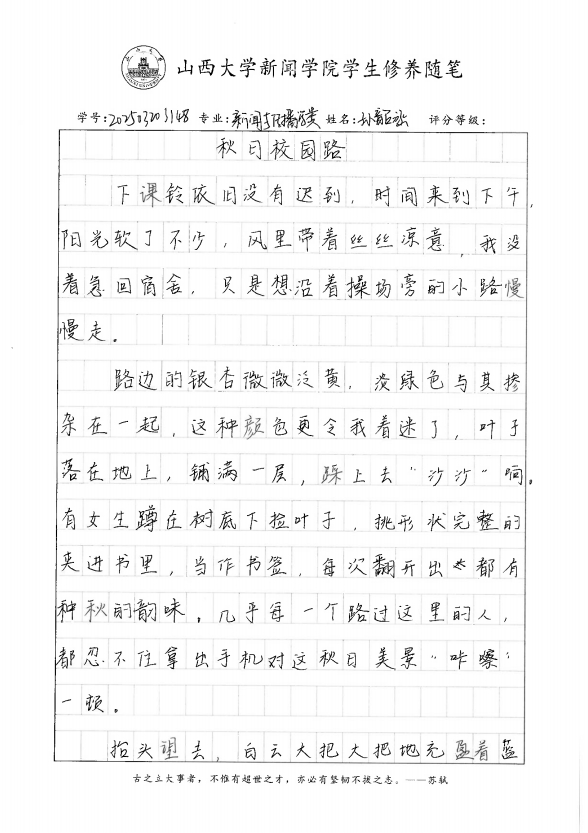 山西大学新闻学院学生修养随笔
学号:202503203148 专业:新闻与传播类 姓名: 评分等级:
秋日校园路
下课铃依旧没有迟到，时间来到下午，
阳光软了不少，风里带着丝丝凉意，我没
着急回宿舍，只是想沿着操场旁的小路慢
慢走。
路边的银杏微微泛黄，淡绿色与其掺
杂在一起，这种颜色更令我着迷了，叶子
落在地上，铺满一层，踩上去“沙沙”响。
有女生蹲在树底下捡叶子，挑形状完整的
夹进书里，当作书签，每次翻开出都有
种秋的韵味。几乎每一个路过这里的人，
都忍不住拿出手机对这秋日美景“咔嚓”
一顿。
抬头望去，白云大把大把地充盈着蓝
古之立大事者，不惟有超世之才，亦必有坚韧不拔之志。——苏轼